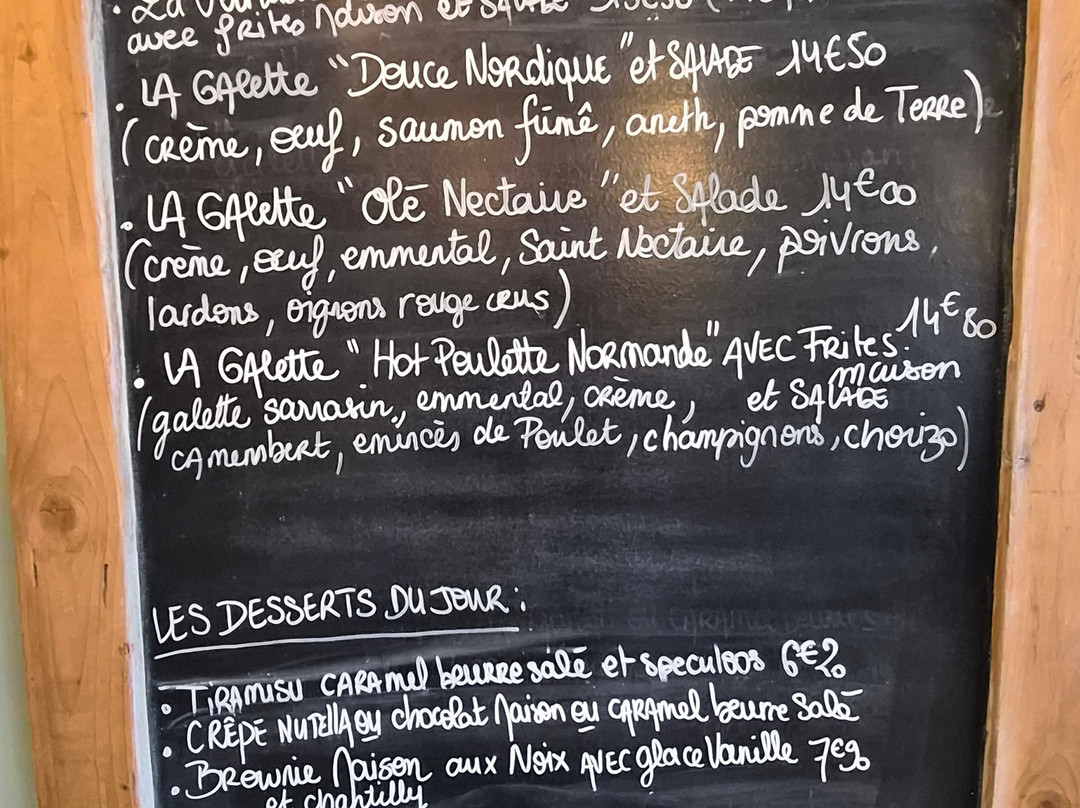 . La
avec frites Maison et SALADE
. LA GAlette "Douce Nordique" et SALADE 14€50
(crème, œuf, saumon fumé, aneth, pomme de Terre)
. LA GAlette "Olé Nectaire" et Salade 14€00
(crème, œuf, emmental, Saint Nectaire, poivrons,
lardons, oignons rouge crus)
. LA GAlette "Hot Poulette Normande" AVEC FRites 14€80
maison
(galette sarrasin, emmental, crème, et SALADE
CAmembert, émincés de Poulet, champignons, choizo)
LES DESSERTS DU JOUR :
. TiRAMiSU CARAmel beurre salé et speculoos 6€20
. CRÊPE NUTELLA ou chocolat Maison ou CARAmel beurre Salé
. BROWNie Maison aux Noix AVEC glace Vanille 7€90
et chantilly